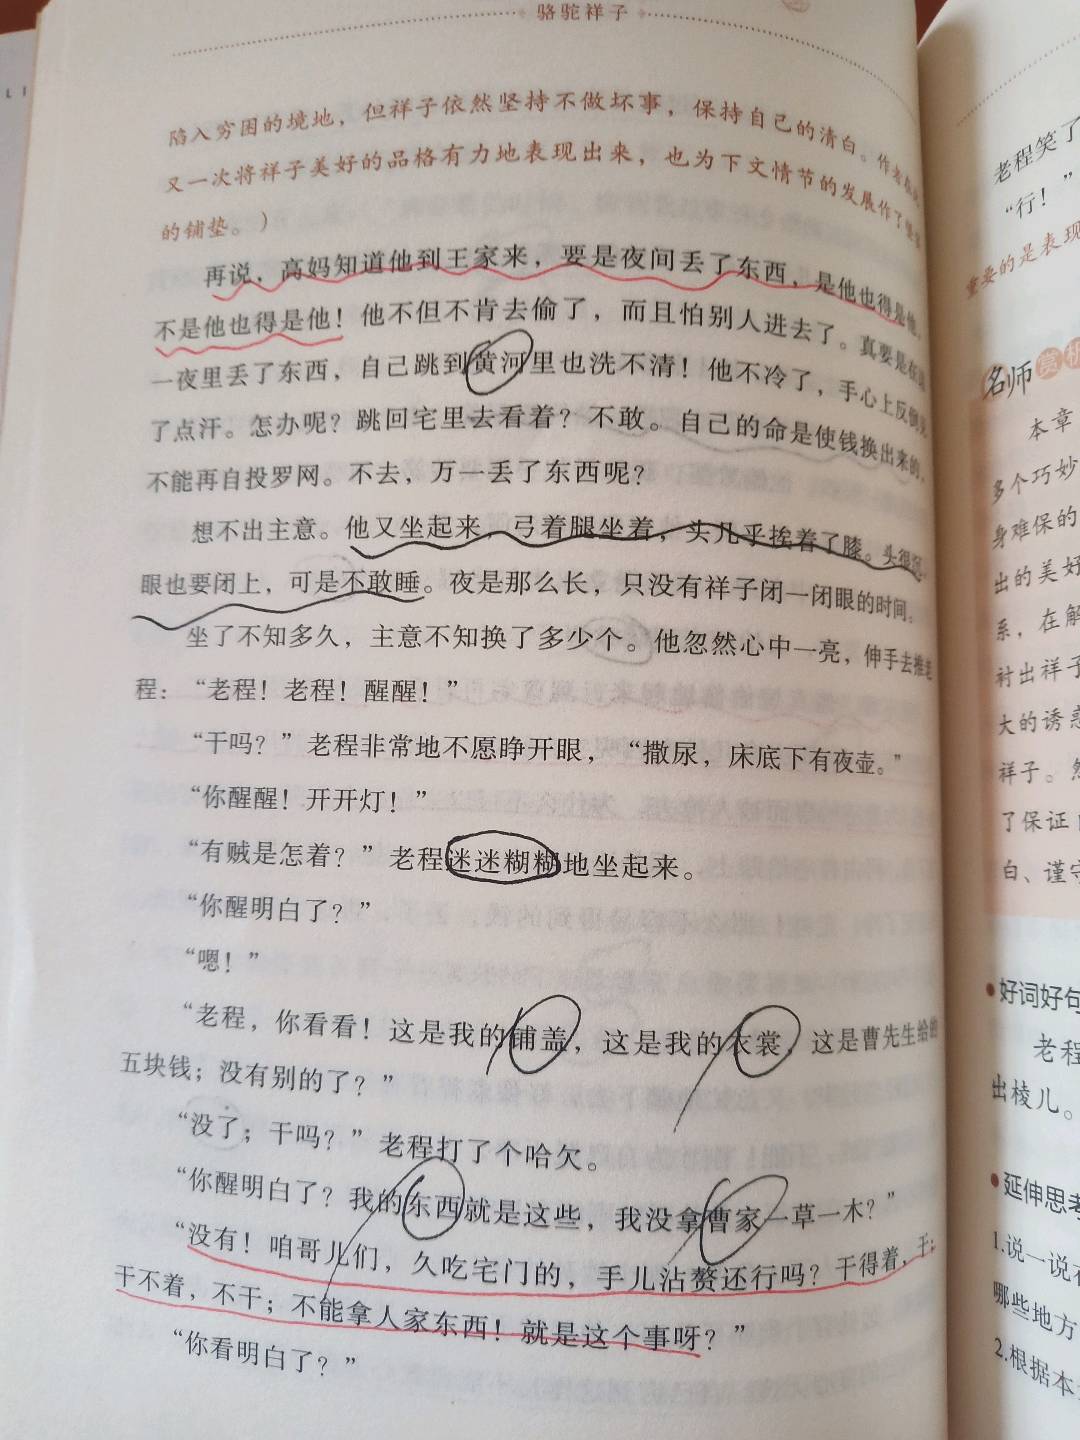 骆驼祥子
陷入穷困的境地，但祥子依然坚持不做坏事，保持自己的清白。作者
又一次将祥子美好的品格有力地表现出来，也为下文情节的发展作了
的铺垫。）
再说，高妈知道他到王家来，要是夜间丢了东西，是他也得是他，
不是他也得是他！他不但不肯去偷了，而且怕别人进去了。真要是在这
一夜里丢了东西，自己跳到黄河里也洗不清！他不冷了，手心上反倒
了点汗。怎办呢？跳回宅里去看着？不敢。自己的命是使钱换出来的，
不能再自投罗网。不去，万一丢了东西呢？
想不出主意。他又坐起来，弓着腿坐着，头几乎挨着了膝。头很沉，
眼也要闭上，可是不敢睡。夜是那么长，只没有祥子闭一闭眼的时间。
坐了不知多久，主意不知换了多少个。他忽然心中一亮，伸手去推老
程：“老程！老程！醒醒！”
“干吗？”老程非常地不愿睁开眼，“撒尿，床底下有夜壶。”
“你醒醒！开开灯！”
“有贼是怎着？”老程迷迷糊糊地坐起来。
“你醒明白了？”
“嗯！”
“老程，你看看！这是我的铺盖，这是我的衣裳，这是曹先生给的
五块钱；没有别的了？”
“没了；干吗？”老程打了个哈欠。
“你醒明白了？我的东西就是这些，我没拿曹家一草一木？”
“没有！咱哥儿们，久吃宅门的，手儿沾赘还行吗？干得着，干；
干不着，不干；不能拿人家东西！就是这个事呀？”
“你看明白了？”
老程笑了
“行！”
重要的是表现
名师赏析
本章
多个巧妙
身难保的
出的美好
系，在解
衬出祥子
大的诱惑
祥子。然
了保证
白、谨守
好词好句
老程
出棱儿。
延伸思考
1.说一说
哪些地方
2.根据本